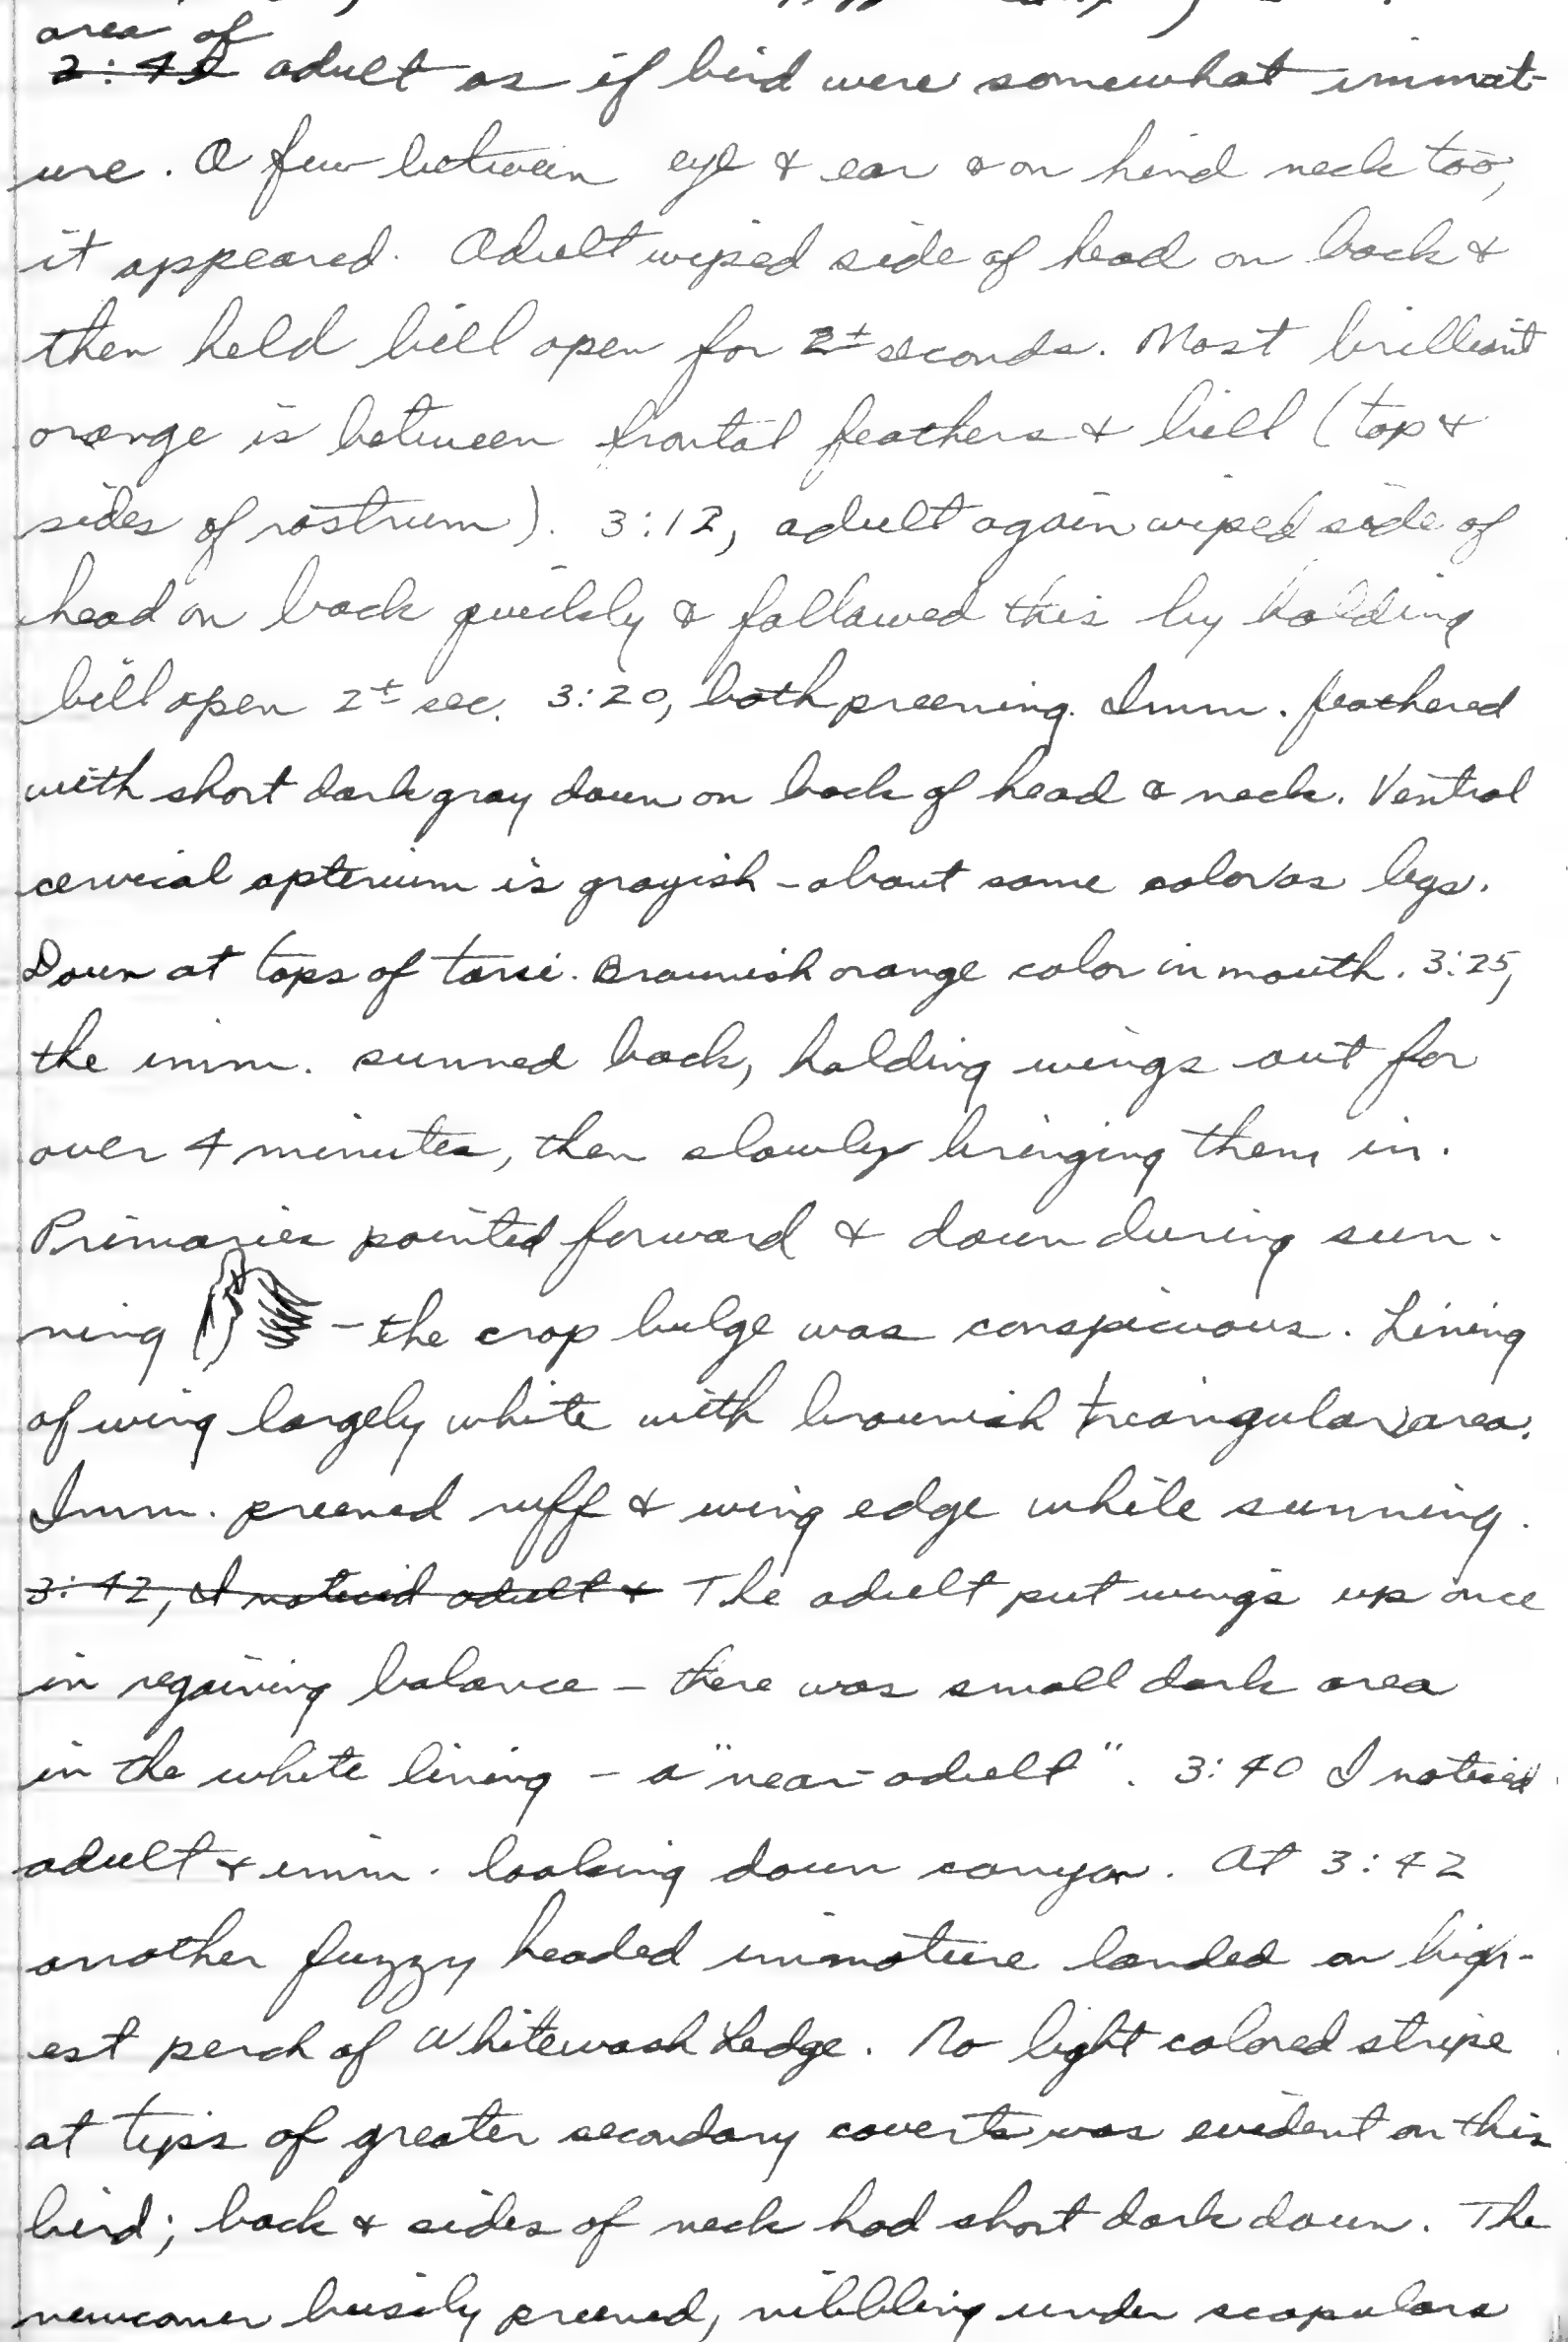 area of
2:45 adult as if bird were somewhat immat-
ure. A few between eye & ear & on hind neck too,
it appeared. Adult wiped side of head on back &
then held bill open for 2± seconds. Most brilliant
orange is between frontal feathers & bill (top &
sides of rostrum). 3:12, adult again wiped side of
head on back quickly & followed this by holding
bill open 2± sec. 3:20, both preening. Imm. feathered
with short dark gray down on back of head & neck. Ventral
cervical apterium is grayish - about same color as legs.
Down at tops of tarsi. Brownish orange color in mouth. 3:25,
the imm. sunned back, holding wings out for
over 4 minutes, then slowly bringing them in.
Primaries pointed forward & down during sun-
ning - the crop bulge was conspicuous. Lining
of wing largely white with brownish triangular area.
Imm. preened ruff & wing edge while sunning.
3:42, I noticed adult & The adult put wings up once
in regaining balance - there was small dark area
in the white lining - a "near-adult". 3:40 I noticed
adult & imm. looking down canyon. At 3:42
another fuzzy headed immature landed on high-
est perch of Whitewash Ledge. No light colored stripe
at tips of greater secondary coverts was evident on this
bird; back & sides of neck had short dark down. The
newcomer busily preened, nibbling under scapulars